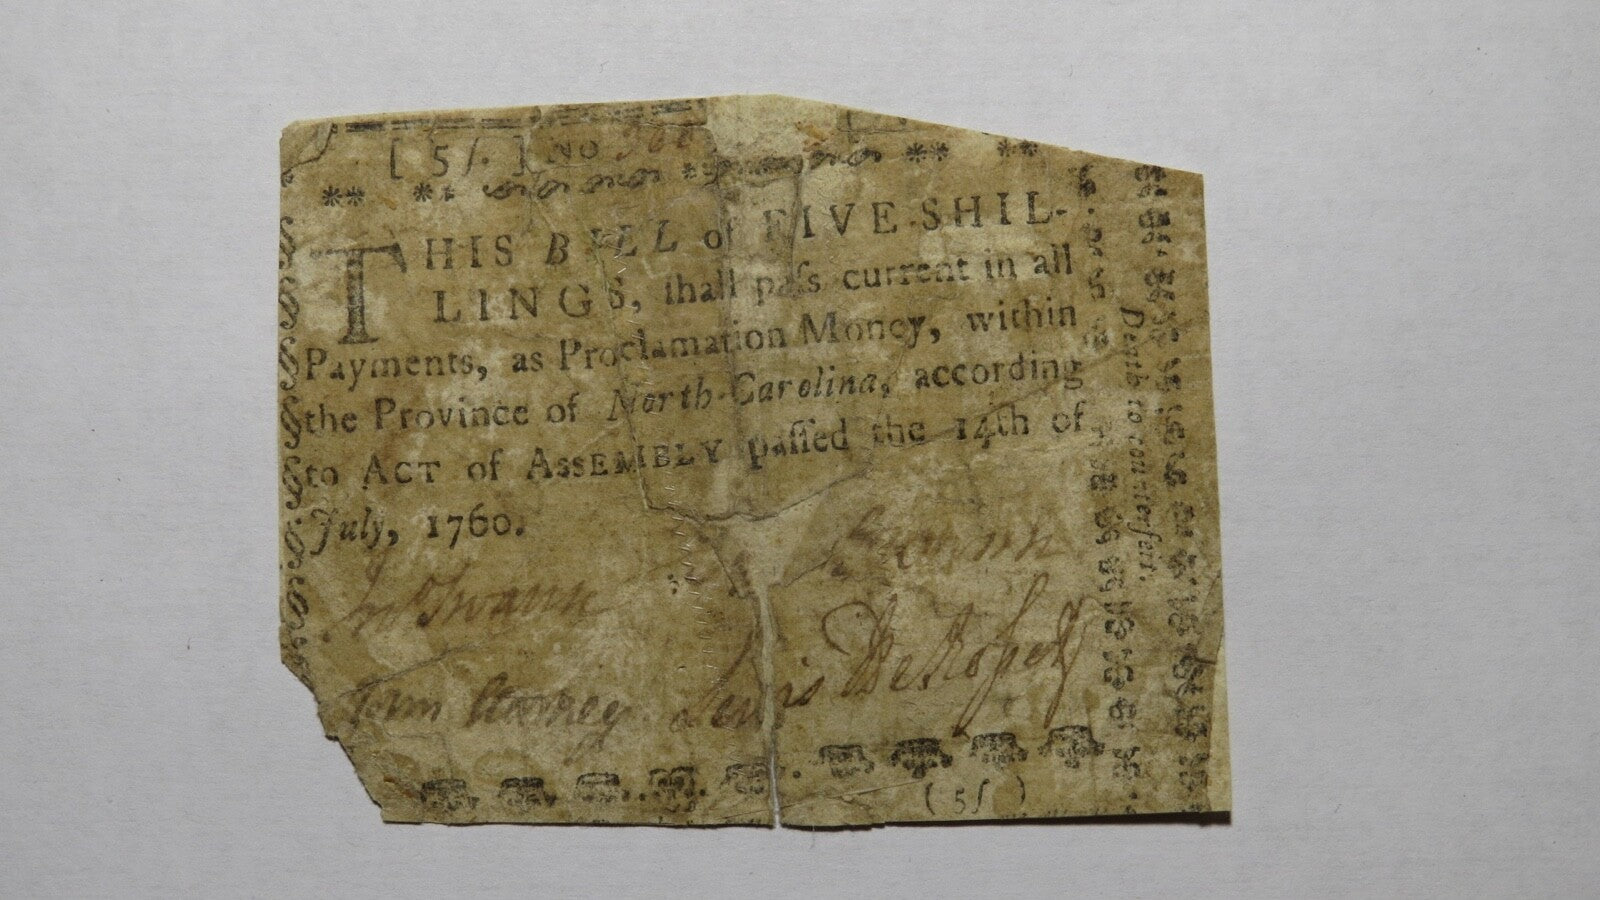 [ 5/. ] No 
THIS BILL of FIVE SHIL-
LINGS, ſhall paſs current in all
Payments, as Proclamation Money, within
the Province of North-Carolina, according
to ACT of ASSEMBLY paſſed the 14th of
July, 1760.
Jno Swann
Lewis DeRosset
( 5ſ )
Death to counterfeit.